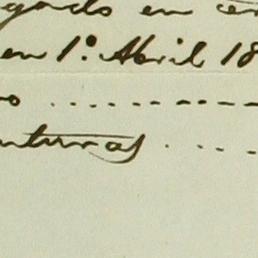 gado en
en 1º. Abril 18
o ..........
nturas .....